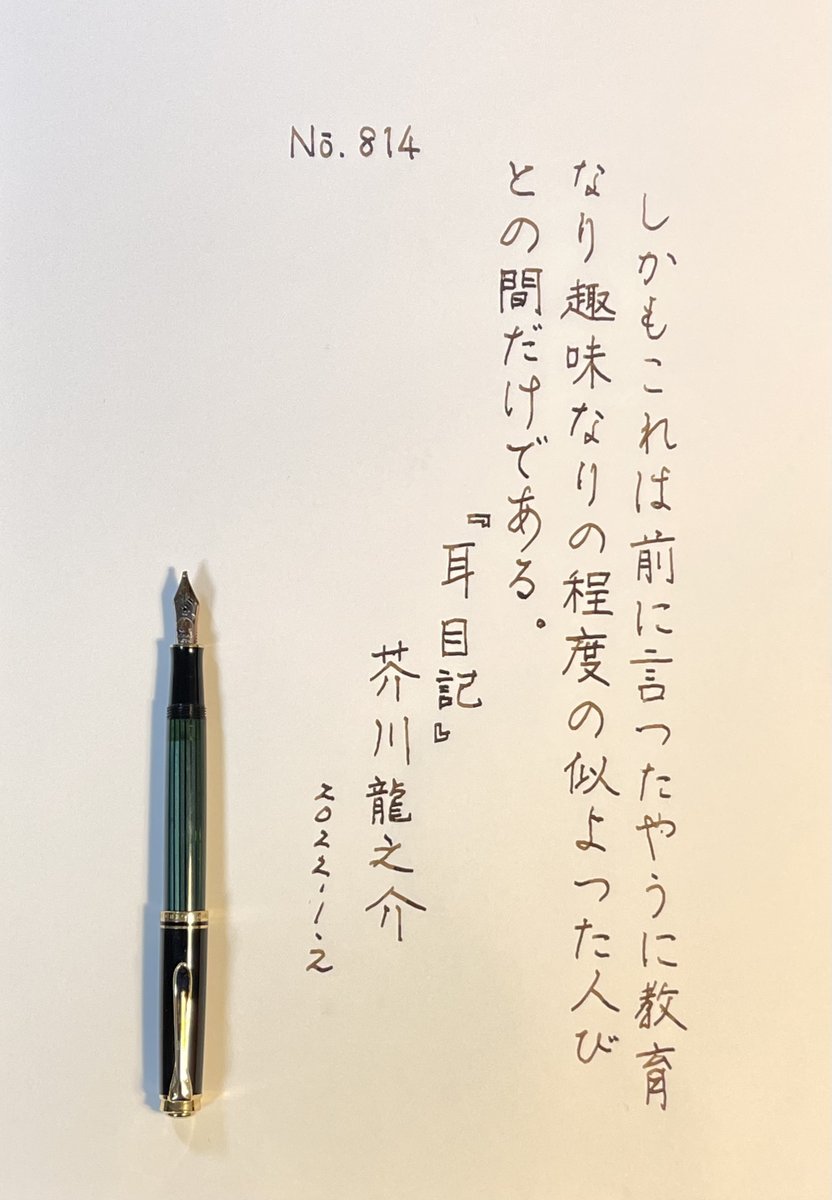 No. 814
しかもこれは前に言つたやうに教育
なり趣味なりの程度の似よつた人び
との間だけである。
『耳目記』
芥川龍之介
2022.1.2